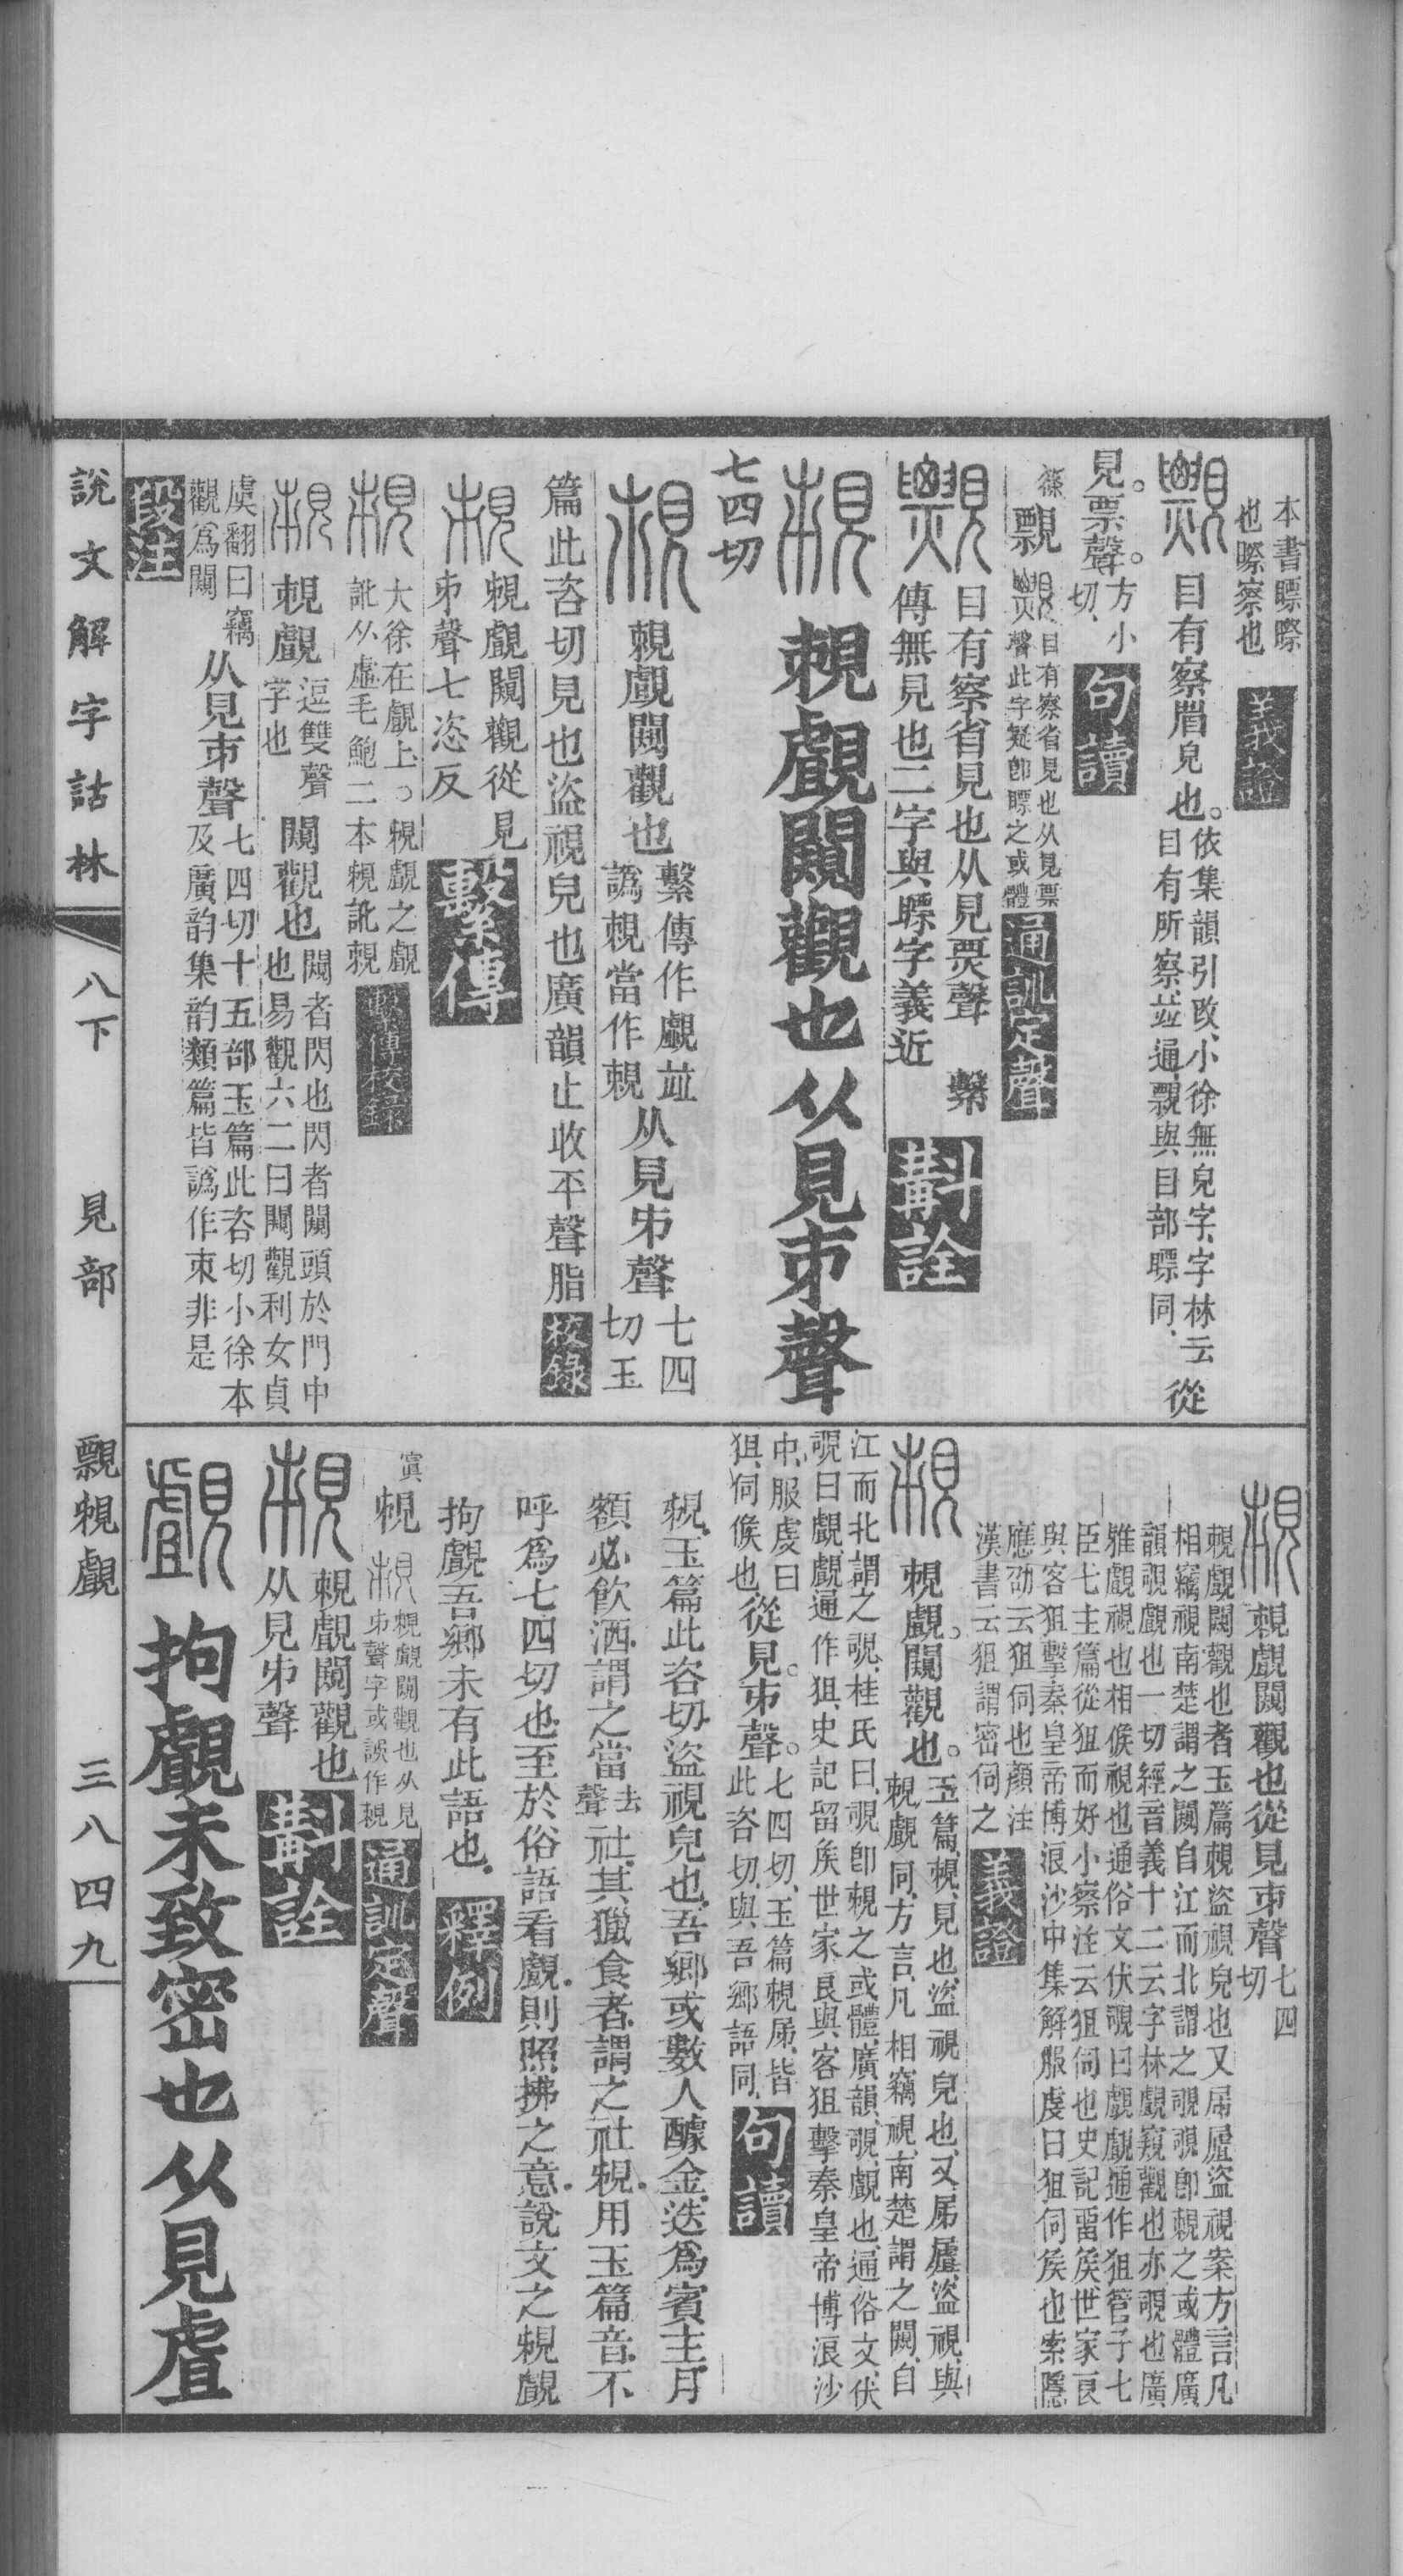 本書瞟瞭
也瞭察也
義證
覹 目有察眉皃也。依集韻引改、小徐無皃字、字林云
目有所察、並通、覹與目部瞟同、從
見。票聲。方小
切、
句讀
篠
覹目有察省見也从見票
聲此字疑卽瞟之或體
通訓定聲
目有察省見也从見票聲 繫
傳無見也二字與瞟字義近
斠詮
覗覰闚觀也从見𠂔聲
七四切
覗覰闚觀也繫傳作覰並
譌覗當作覗从見𠂔聲七四
切玉
篇此咨切見也盜視皃也廣韻止收平聲脂
校錄
覗覰闚觀從見
𠂔聲七恣反
繫傳
大徐在覰上。覗覰之覰
訛从虛毛鮑二本覗訛覗
繫傳校錄
覗覰逗雙聲
字也闚觀也闚者閃也閃者闚頭於門中
也易觀六二曰闚觀利女貞
虞翻曰竊
觀爲闚从見𠂔聲七四切十五部玉篇此咨切小徐本
及廣韵集韵類篇皆譌作朿非是
段注
覗覰闚觀也從見𠂔聲七四
切
覗覰闚觀也者玉篇覗盜視皃也又屌𡳐盜視案方言凡
相竊視南楚謂之闚自江而北謂之覗覗卽覗之或體廣
韻覗覰也一切經音義十二云字林覰窺觀也亦覗也廣
雅覰視也相候視也通俗文伏覗曰覰覰通作狙管子七
臣七主篇從狙而好小察注云狙伺也史記畱矦世家良
與客狙擊秦皇帝博浪沙中集解服虔曰狙伺矦也索隱
應劭云狙伺也顏注
漢書云狙謂密伺之
義證
覗覰。闚觀也。玉篇、覗、見也、盜視皃也、又屌𡳐、盜視、與
覗覰同、方言、凡相竊視、南楚謂之闚、自
江而北、謂之覗、桂氏曰、覗卽覗之或體、廣韻、覗、覰也、通俗文、伏
覗曰覰、覰通作狙、史記留矦世家、良與客狙擊秦皇帝博浪沙
中、服虔曰
狙、伺候也從見。𠂔聲。七四切、玉篇覗屌、皆
此咨切、與吾鄉語同、
句讀
覗.玉篇此咨切.盜視皃也.吾鄉或數人醵金.迭爲賓主.月
額必飲酒.謂之當去
聲社.其獵食者.謂之社覗.用玉篇音.不
呼爲七四切也.至於俗語看覰.則照拂之意.說文之覗覰
拘覰吾鄉未有此語也.
釋例
寘
覗覗覰闚觀也从見
𠂔聲字或誤作覗
通訓定聲
覗覰闚觀也
从見𠂔聲
斠詮
拘覰未致密也从見虘
說文解字詁林 八下 見部 覹覗覰 三八四九